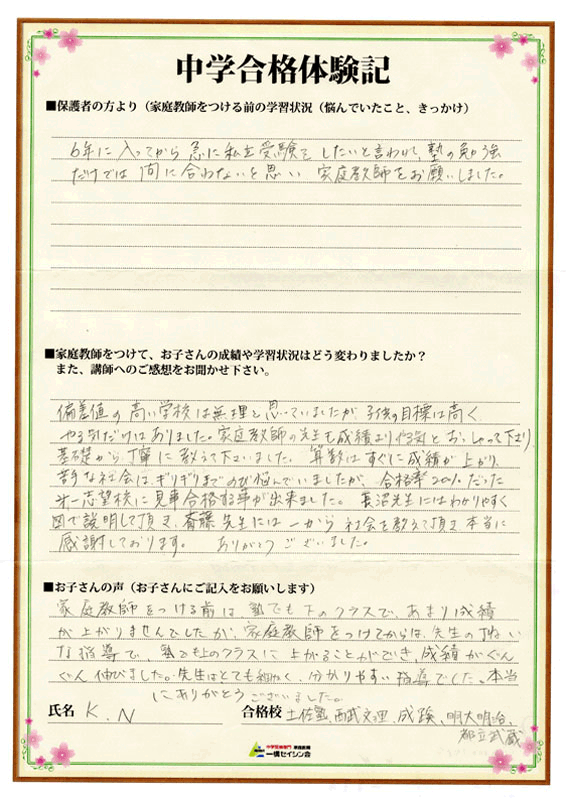 中学合格体験記
■保護者の方より（家庭教師をつける前の学習状況（悩んでいたこと、きっかけ）
6年に入ってから急に私立受験をしたいと言われ、塾の勉強
だけでは間に合わないと思い 家庭教師をお願いしました。
■家庭教師をつけて、お子さんの成績や学習状況はどう変わりましたか？
また、講師へのご感想をお聞かせ下さい。
偏差値の高い学校は無理と思っていましたが、子供の目標は高く
やる気だけはありました。家庭教師の先生も成績よりやる気とおっしゃって下さり、
基礎から丁寧に教えて下さいました。算数はすぐに成績が上がり、
苦手な社会はギリギリまでのび悩んでいましたが、合格率20%だった
第一志望校に見事合格する事が出来ました。長沼先生にはわかりやすく
図で説明して頂き、斉藤先生には一から社会を教えて頂き本当に
感謝しております。 ありがとうございました。
■お子さんの声（お子さんにご記入をお願いします）
家庭教師をつける前は塾でも下のクラスで、あまり成績
が上がりませんでしたが、家庭教師をつけてからは、先生のていねい
な指導で、塾でも上のクラスに上がることができ、成績がぐん
ぐん伸びました。先生はとても細かく、分かりやすい指導でした。本当
にありがとうございました。
氏名 K.N 合格校 土佐塾、西武文理、成蹊、明大明治、
都立武蔵
中学受験専門 家庭教師
一橋セイシン会